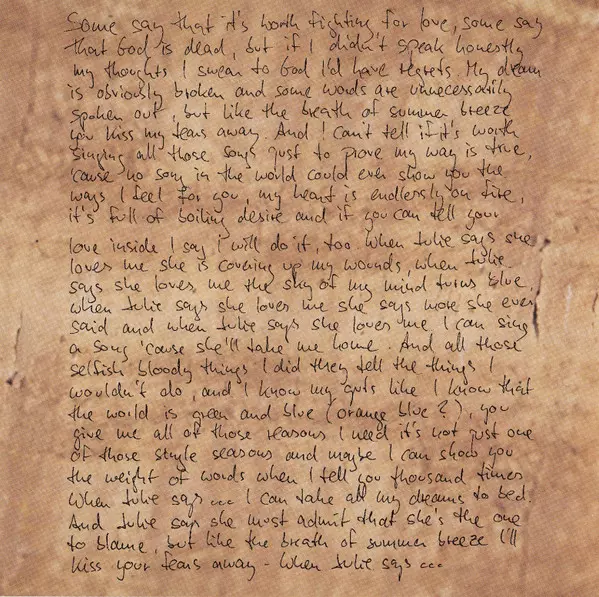 Some say that it's worth fighting for love, some say
that God is dead, but if I didn't speak honestly
my thoughts I swear to God I'd have regrets. My dream
is obviously broken and some words are unnecessarily
spoken out, but like the breath of summer breeze
you kiss my tears away. And I can't tell if it's worth
singing all those songs just to prove my way is true,
'cause no song in the world could ever show you the
ways I feel for you, my heart is endlessly on fire,
it's full of boiling desire and if you can tell your
love inside I say I will do it, too when Julie says she
loves me she is covering up my wounds, when Julie
says she loves me the sky of my mind turns blue.
when Julie says she loves me she says more she ever
said and when Julie says she loves me I can sing
a song 'cause she'll take me home. And all those
selfish bloody things I did they tell the things I
wouldn't do, and I know my guts like I know that
the world is green and blue (orange blue?), you
give me all of those reasons I need it's not just one
of those style seasons and maybe I can show you
the weight of words when I tell you thousand times
When Julie says ... I can take all my dreams to bed.
And Julie says she must admit that she's the one
to blame, but like the breath of summer breeze I'll
kiss your tears away - When Julie says ...